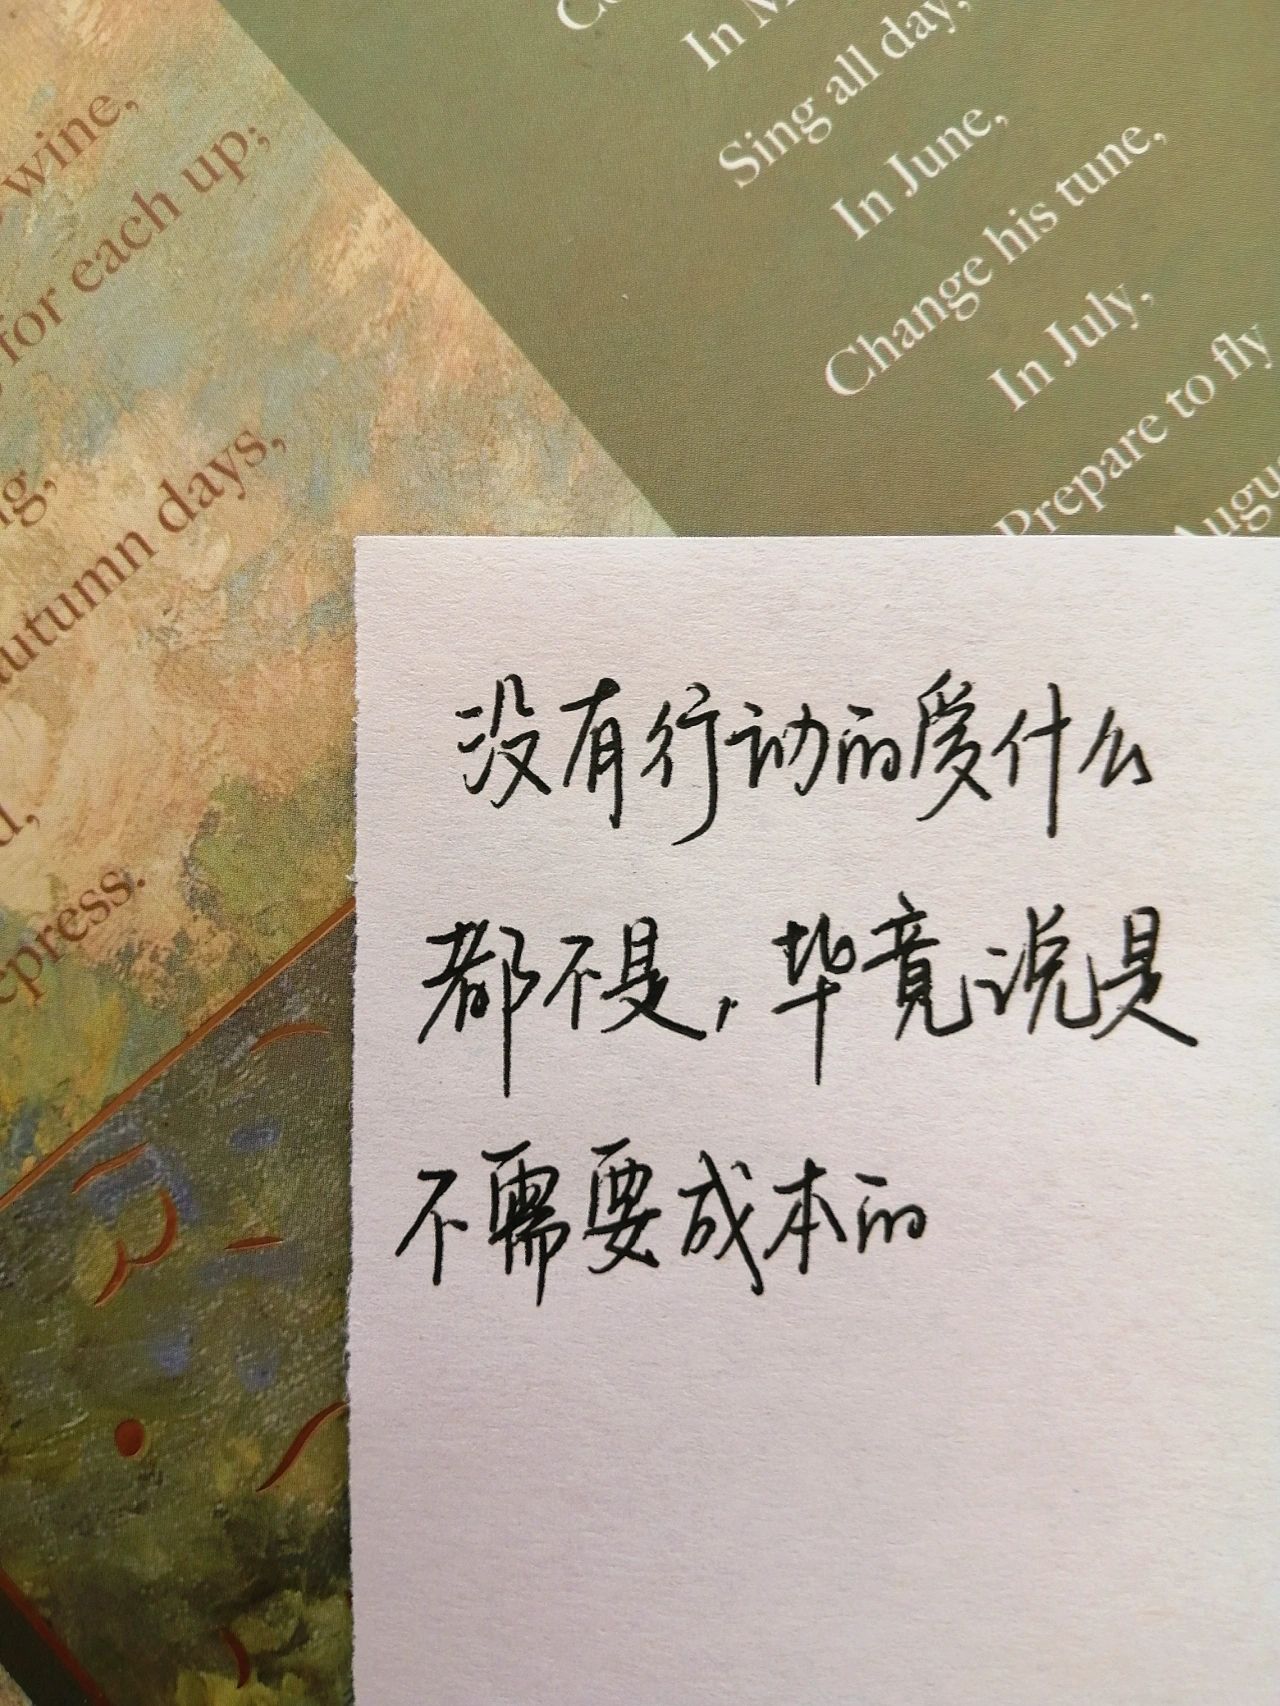 wine,
for each up;
autumn days,
press.
In
Sing all day,
In June,
Change his tune,
In July,
Prepare to fly
没有行动的爱什么
都不是，毕竟说是
不需要成本的